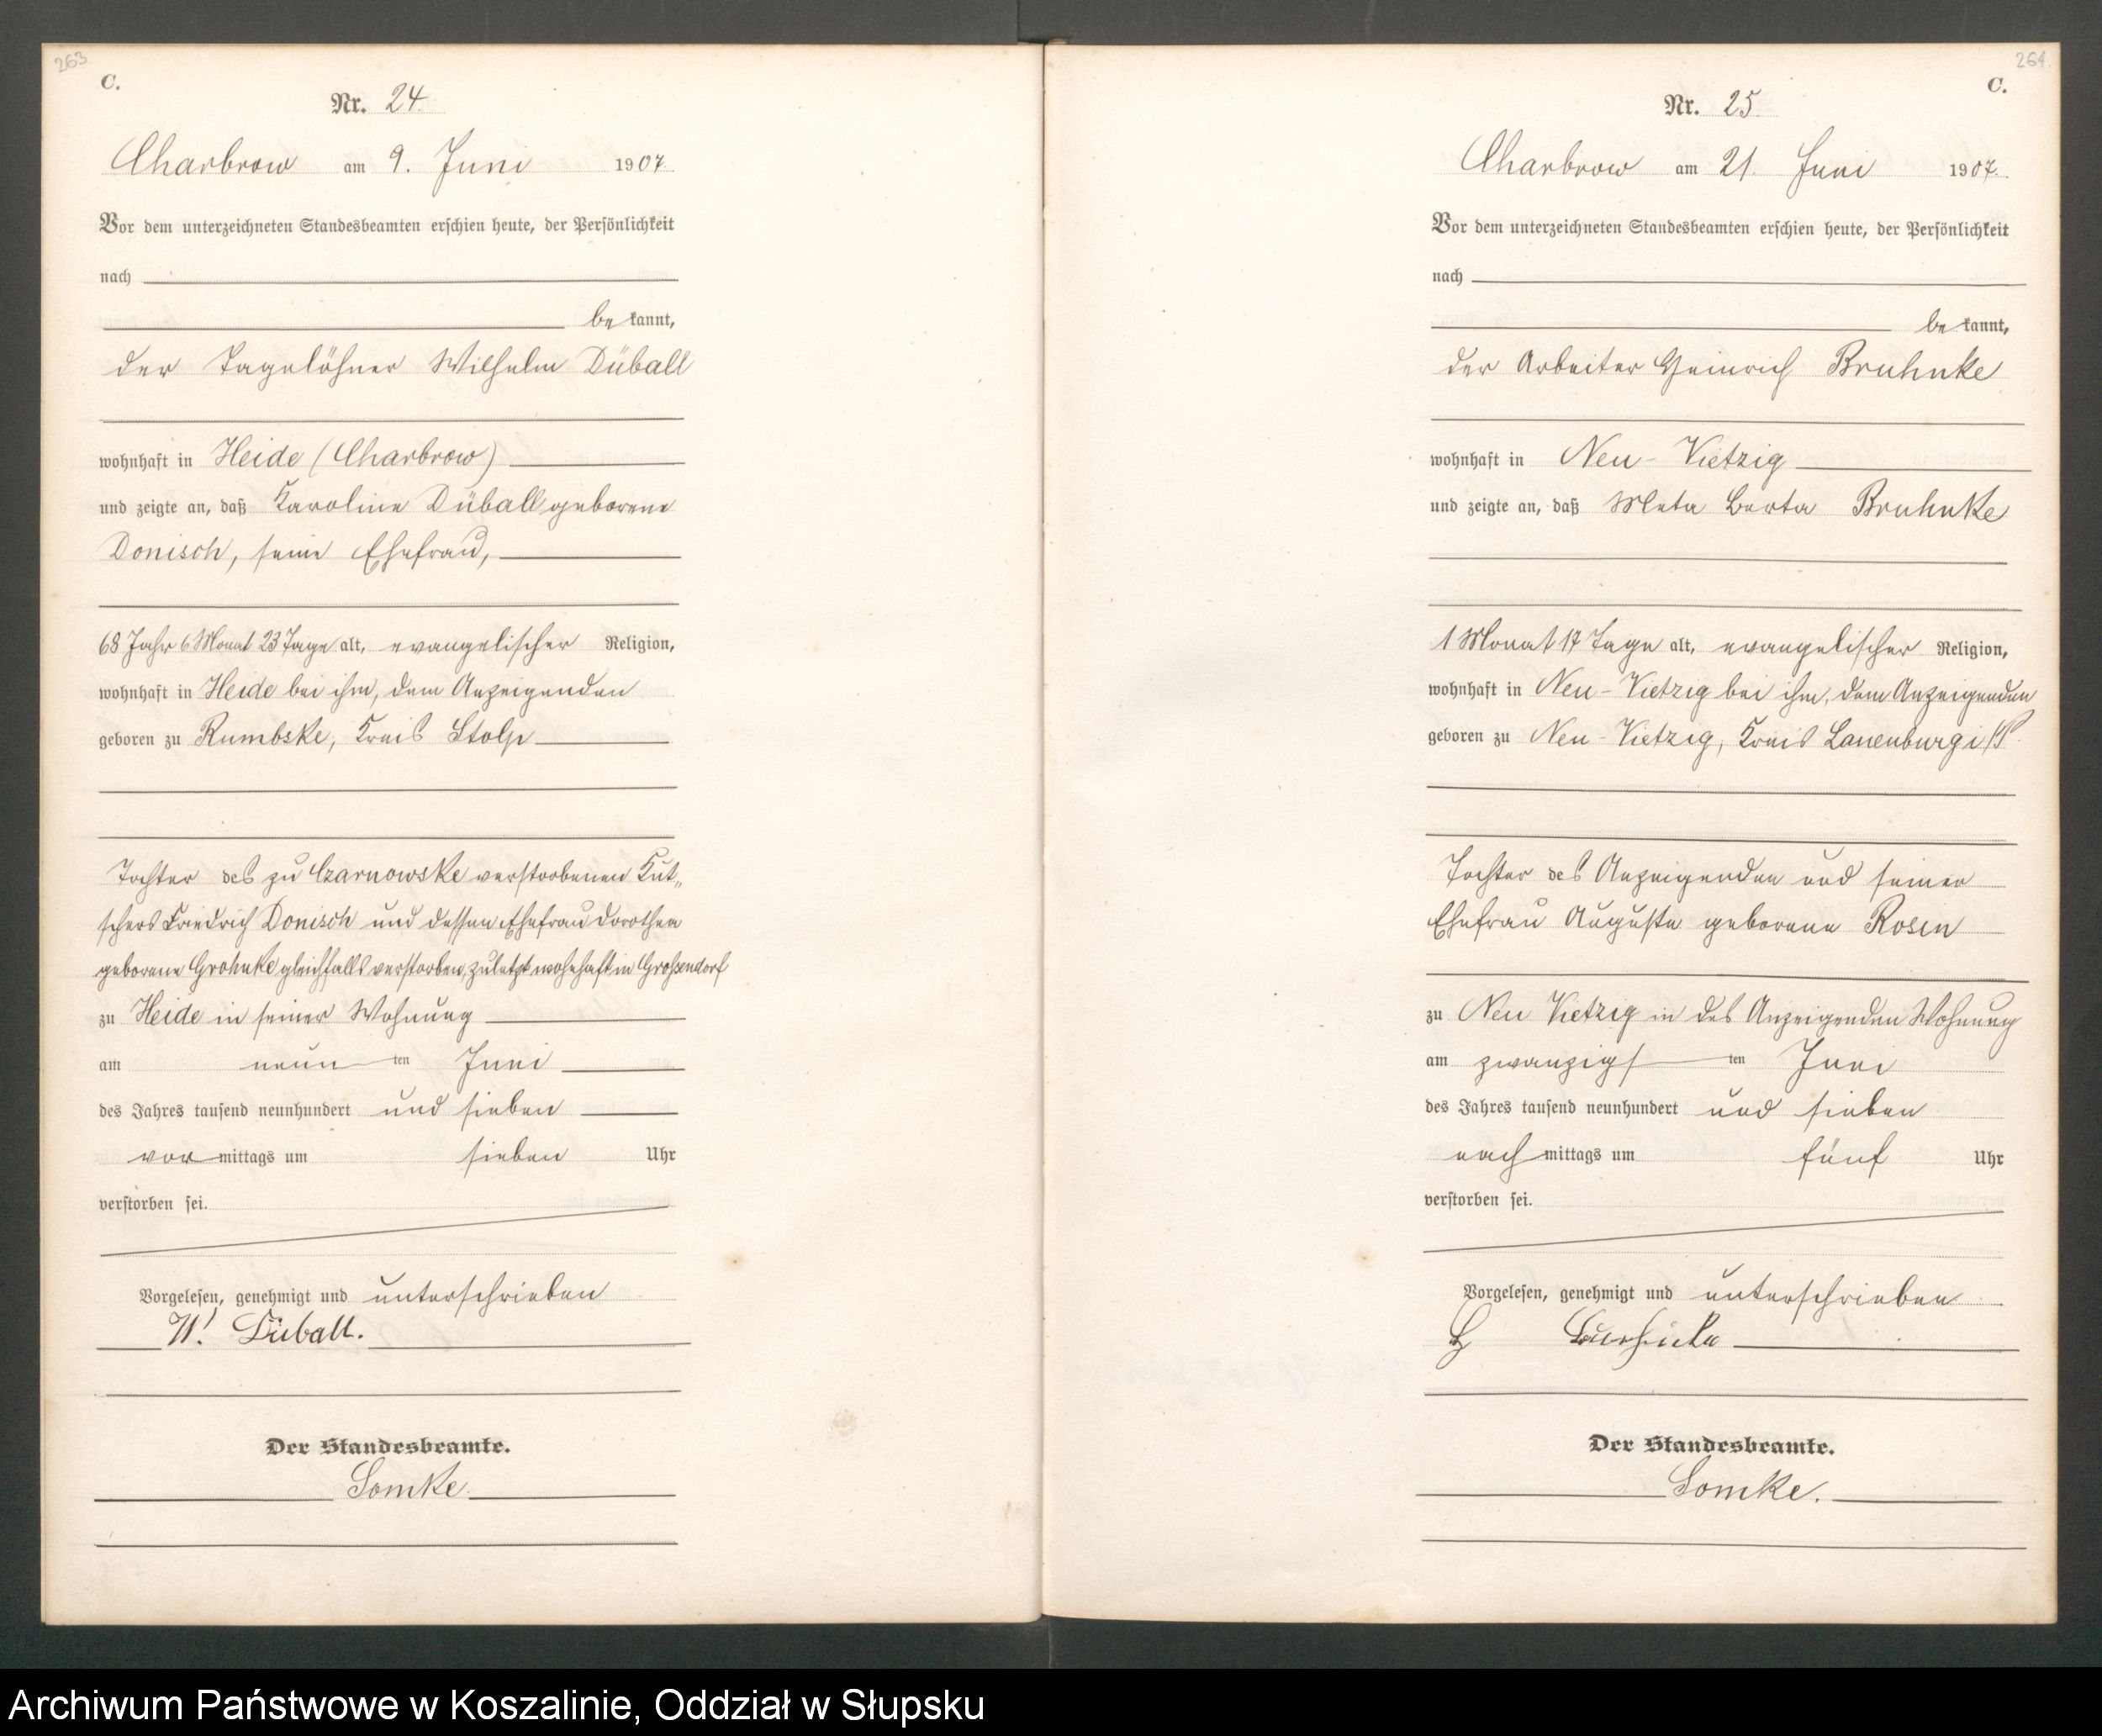 263.
C.
Nr. 24.
Charbrow am 9. Juni 1907.
Vor dem unterzeichneten Standesbeamten erschien heute, der Persönlichkeit
nach
be kannt,
der Tagelöhner Wilhelm Düball
wohnhaft in Heide (Charbrow)
und zeigte an, daß Karoline Düball geborene
Donisch, seine Ehefrau,
68 Jahr 6 Monat 23 Tage alt, evangelischer Religion,
wohnhaft in Heide bei ihm, dem Anzeigenden
geboren zu Rumbske, Kreis Stolp
Tochter des zu Czarnowske verstorbenen Kut„
schers Friedrich Donisch und dessen Ehefrau Dorothea
geborene Grohnke gleichfalls verstorben, zuletzt wohnhaft in Großendorf
zu Heide in seiner Wohnung
am neun ten Juni
des Jahres tausend neunhundert und sieben
vor mittags um sieben Uhr
verstorben sei.
Vorgelesen, genehmigt und unterschrieben
W. Düball.
Der Standesbeamte.
Somke.
264.
C.
Nr. 25.
Charbrow am 21. Juni 1907.
Vor dem unterzeichneten Standesbeamten erschien heute, der Persönlichkeit
nach
be kannt,
der Arbeiter Heinrich Bruhnke
wohnhaft in Neu-Vietzig
und zeigte an, daß Meta Berta Bruhnke
1 Monat 17 Tage alt, evangelischer Religion,
wohnhaft in Neu-Vietzig bei ihm, dem Anzeigenden
geboren zu Neu-Vietzig, Kreis Lauenburg i/P.
Tochter des Anzeigenden und seiner
Ehefrau Auguste geborene Rosin
zu Neu Vietzig in des Anzeigenden Wohnung
am zwanzigs ten Juni
des Jahres tausend neunhundert und sieben
nach mittags um fünf Uhr
verstorben sei.
Vorgelesen, genehmigt und unterschrieben
H
Der Standesbeamte.
Somke.
Archiwum Państwowe w Koszalinie, Oddział w Słupsku